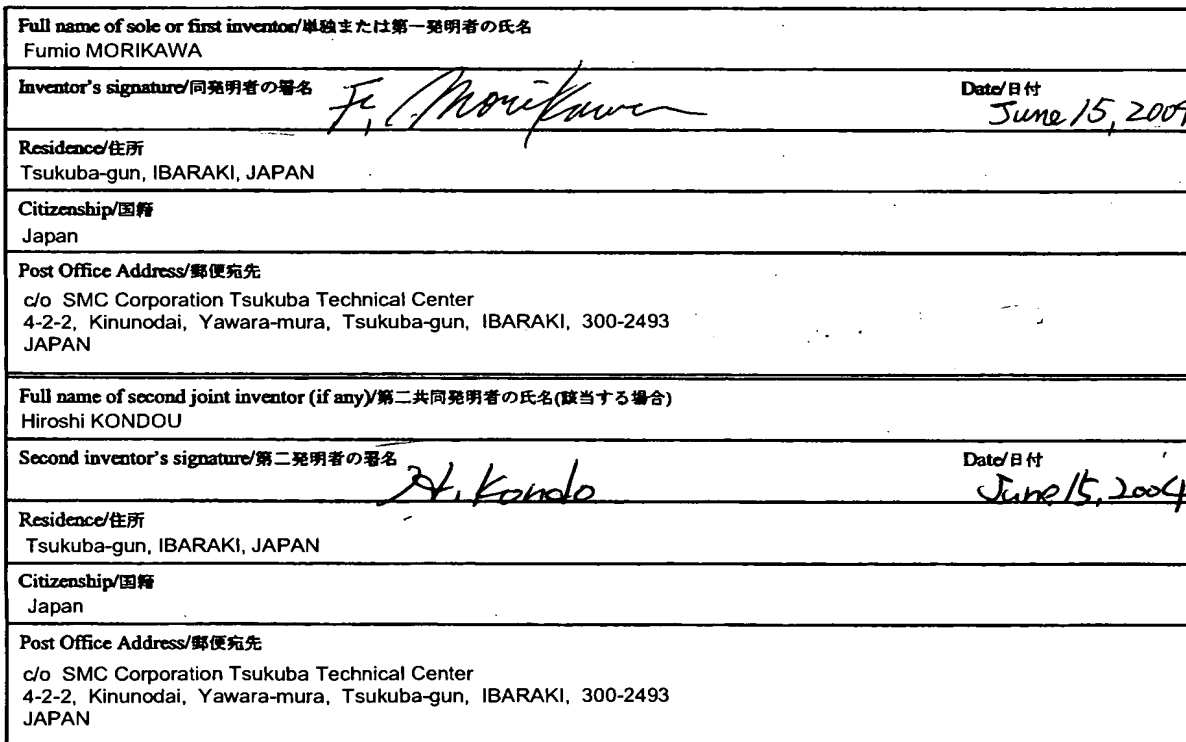 Full name of sole or first inventor/単独または第一発明者の氏名
Fumio MORIKAWA
Inventor's signature/同発明者の署名 F. Morikawa Date/日付 June 15, 2004
Residence/住所
Tsukuba-gun, IBARAKI, JAPAN
Citizenship/国籍
Japan
Post Office Address/郵便宛先
c/o SMC Corporation Tsukuba Technical Center
4-2-2, Kinunodai, Yawara-mura, Tsukuba-gun, IBARAKI, 300-2493
JAPAN
Full name of second joint inventor (if any)/第二共同発明者の氏名(該当する場合)
Hiroshi KONDOU
Second inventor's signature/第二発明者の署名 H. Kondo Date/日付 June 15, 2004
Residence/住所
Tsukuba-gun, IBARAKI, JAPAN
Citizenship/国籍
Japan
Post Office Address/郵便宛先
c/o SMC Corporation Tsukuba Technical Center
4-2-2, Kinunodai, Yawara-mura, Tsukuba-gun, IBARAKI, 300-2493
JAPAN